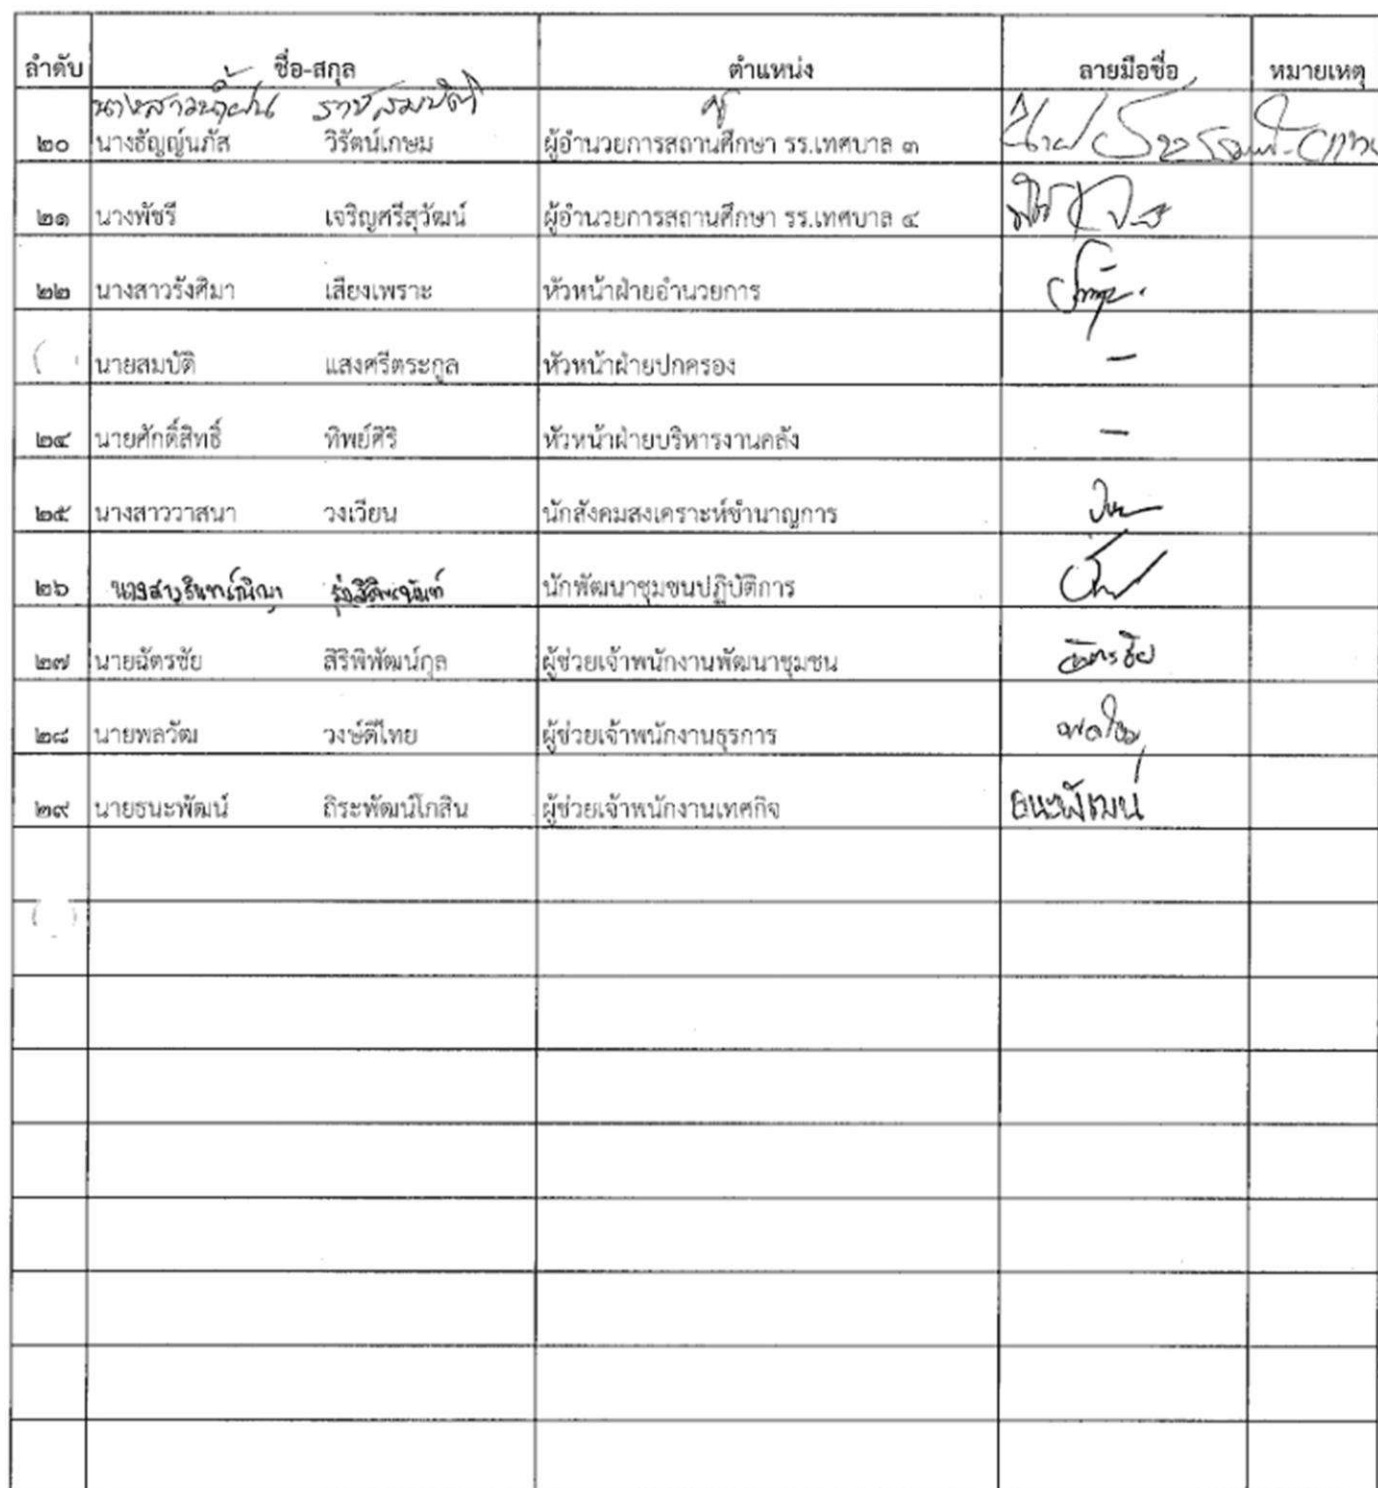 ลำดับ ชื่อ-สกุล ตำแหน่ง ลายมือชื่อ หมายเหตุ
๒๐ นางธัญญ์นภัส วิรัตน์เกษม ผู้อำนวยการสถานศึกษา รร.เทศบาล ๓
๒๑ นางพัชรี เจริญศรีสุวัฒน์ ผู้อำนวยการสถานศึกษา รร.เทศบาล ๔
๒๒ นางสาวรังศิมา เสียงเพราะ หัวหน้าฝ่ายอำนวยการ
นายสมบัติ แสงศรีตระกูล หัวหน้าฝ่ายปกครอง –
๒๔ นายศักดิ์สิทธิ์ ทิพย์ศิริ หัวหน้าฝ่ายบริหารงานคลัง –
๒๕ นางสาววาสนา วงเวียน นักสังคมสงเคราะห์ชำนาญการ
๒๖ นักพัฒนาชุมชนปฏิบัติการ
๒๗ นายฉัตรชัย สิริพิพัฒน์กุล ผู้ช่วยเจ้าพนักงานพัฒนาชุมชน ฉัตรชัย
๒๘ นายพลวัฒ วงษ์ดีไทย ผู้ช่วยเจ้าพนักงานธุรการ
๒๙ นายธนะพัฒน์ ถิระพัฒน์โกสิน ผู้ช่วยเจ้าพนักงานเทศกิจ ธนะพัฒน์